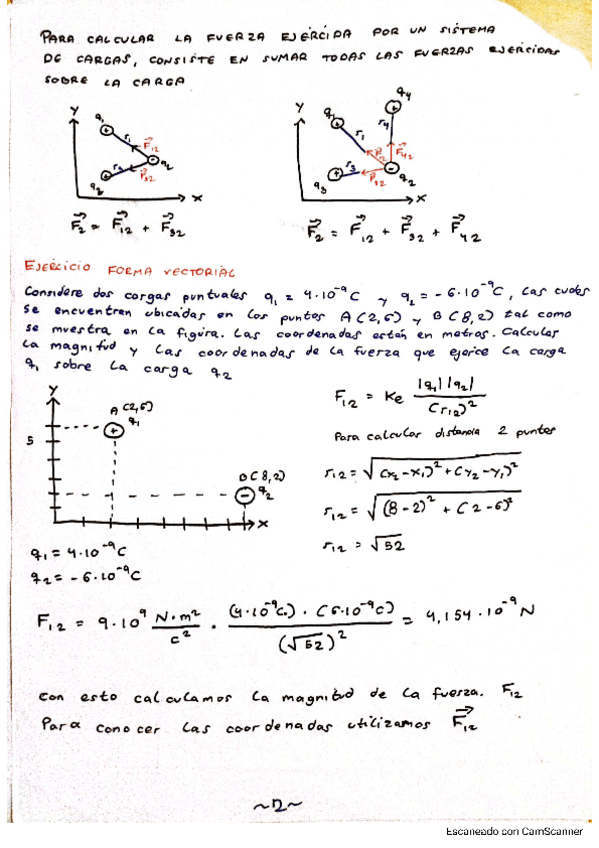 PARA CALCULAR LA FUERZA EJERCIDA POR UN SISTEMA
DE CARGAS, CONSISTE EN SUMAR TODAS LAS FUERZAS EJERCIDAS
SOBRE LA CARGA
Y q₁ r₁ F⃗₁₂ q₂ r₂ F⃗₃₂ q₂ X
Y q₁ q₄ r₁ r₄ F⃗₁₂ F⃗₄₂ r₃ F⃗₃₂ q₃ q₂ X
F⃗₂ = F⃗₁₂ + F⃗₃₂
F⃗₂ = F⃗₁₂ + F⃗₃₂ + F⃗₄₂
EJERCICIO FORMA VECTORIAL
Considere dos cargas puntuales q₁ = 4·10⁻⁹C y q₂ = -6·10⁻⁹C, las cuales
se encuentran ubicadas en los puntos A(2,6) y B(8,2) tal como
se muestra en la figura. Las coordenadas están en metros. Calcules
la magnitud y las coordenadas de la fuerza que ejerce la carga
q₁ sobre la carga q₂
Y
A(2,6)
q₁
5
B(8,2)
q₂
X
q₁ = 4·10⁻⁹C
q₂ = -6·10⁻⁹C
F₁₂ = Ke |q₁||q₂| / (r₁₂)²
Para calcular distancia 2 puntos
r₁₂ = √(x₂-x₁)² + (y₂-y₁)²
r₁₂ = √(8-2)² + (2-6)²
r₁₂ = √52
F₁₂ = 9·10⁹ N·m²/c² · (4·10⁻⁹c) · (6·10⁻⁹c) / (√52)² = 4,154·10⁻⁹ N
con esto calculamos la magnitud de la fuerza. F₁₂
Para conocer las coordenadas utilizamos F⃗₁₂
~12~
Escaneado con CamScanner